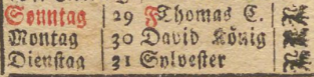 Sonntag 29 Thomas C.
Montag 30 David König
Dienstag 31 Sylvester